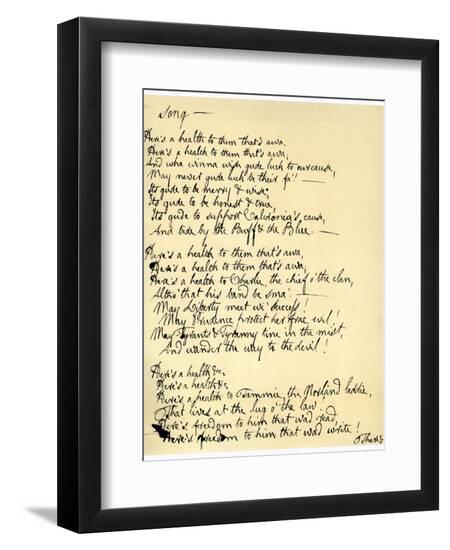 Song —
Here's a health to them that's awa,
Here's a health to them that's awa;
And wha winna wish gude luck to our cause,
May never gude luck be their fa'! —
Its gude to be merry & wise;
Its gude to be honest & true,
Its gude to support Caledonia's cause,
And bide by the Buff & the Blue. —
Here's a health to them that's awa,
Here's a health to them that's awa;
Here's a health to Charlie, the chief o' the clan,
Altho' that his band be sma'. —
May Liberty meet wi' success!
May Prudence protect her frae evil!
May Tyrants & Tyranny tine in the mist,
And wander the way to the devil!
Here's a health &c.
Here's a health &c.
Here's a health to Tammie, the Norland laddie,
That lives at the lug o' the law
Here's freedom to him that wad read,
Here's freedom to him that wad write!